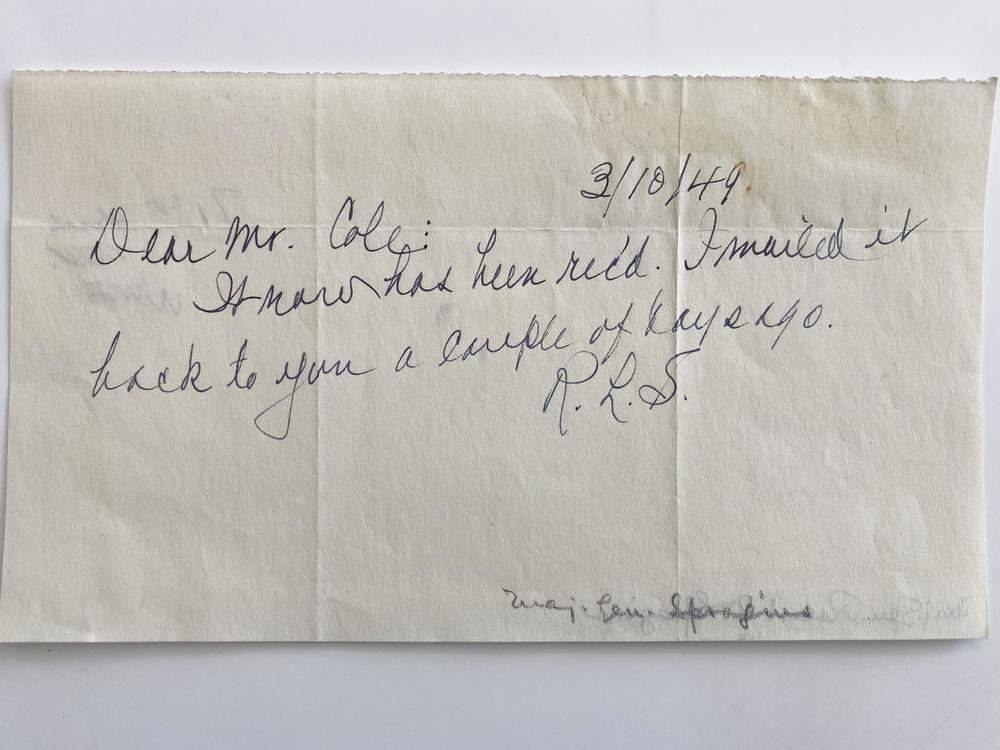 3/10/49
Dear Mr. Cole:
It now has been rec'd. I mailed it
back to you a couple of days ago.
R. L. S.
Maj. Gen. Spragins